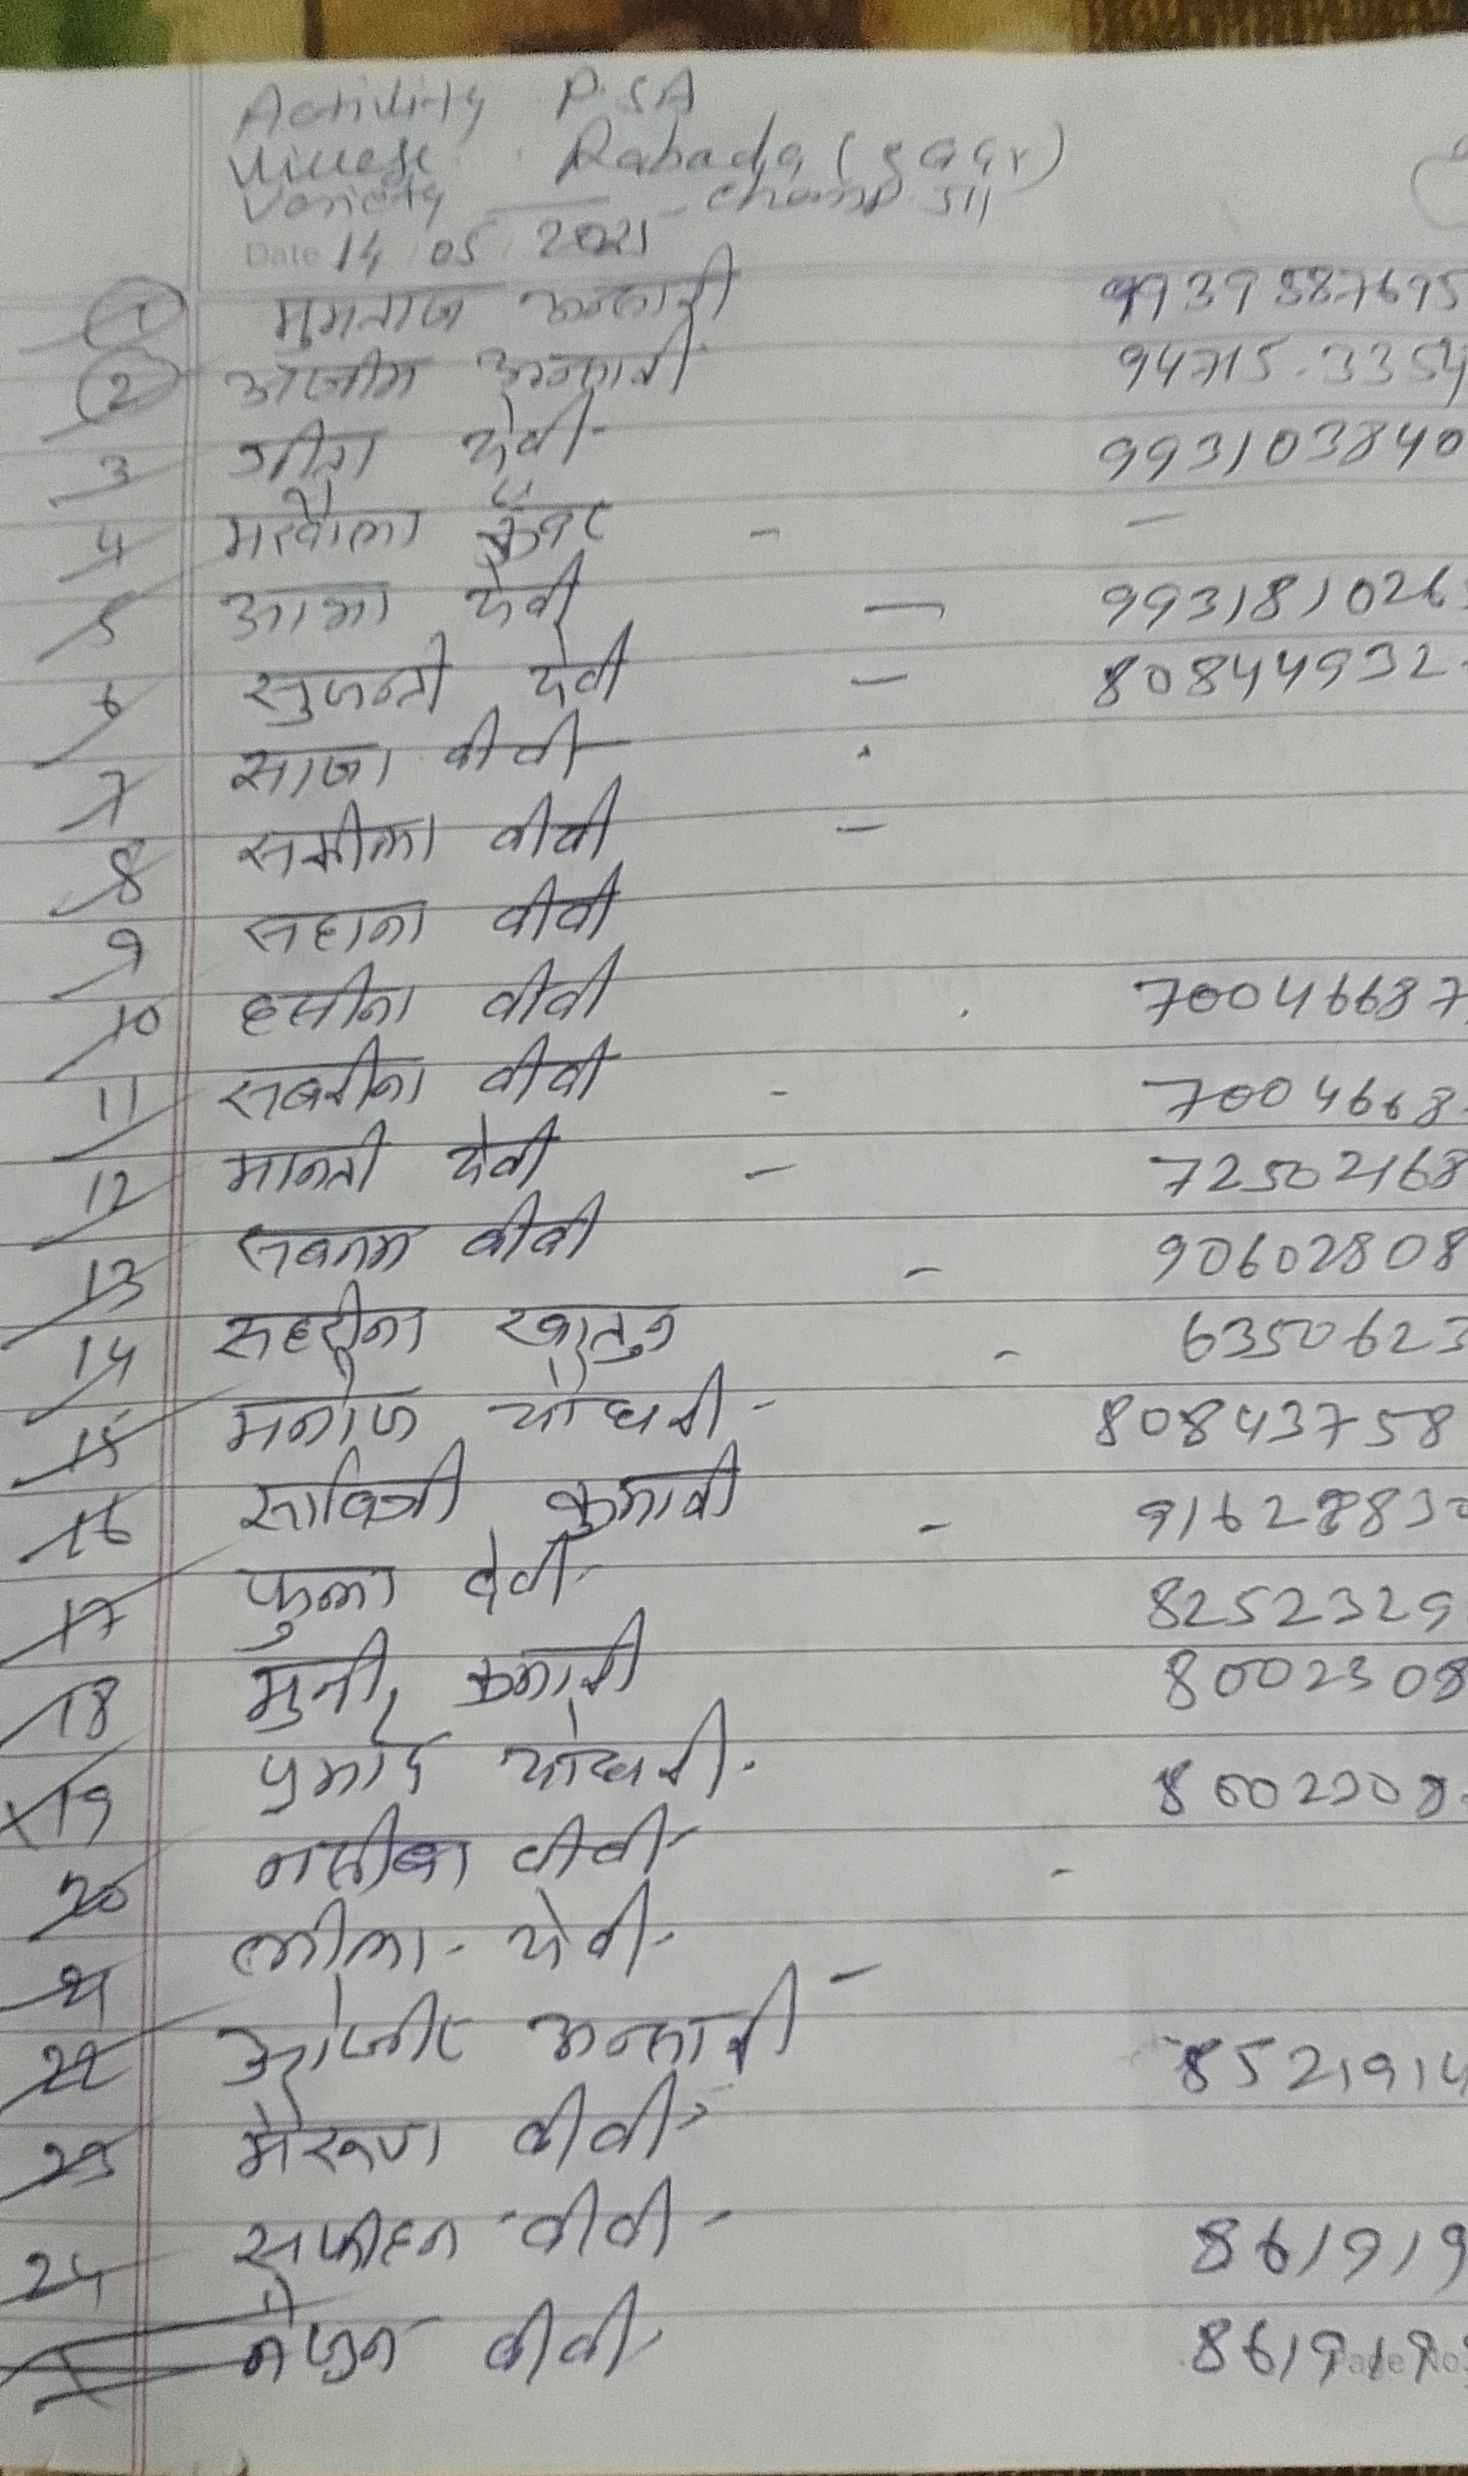 Activity P.SA
Village Rabada (sagar)
Variety — champ. 511
Date 14/05/2021
1 मुमताज अन्सारी 9939587695
2 अजीम अन्सारी 94715.3354
3 गीता देवी - 993103840
4 कुँवर - —
5 आभा देवी — 993181026
6 सुजन्ती देवी — 80844932
7 साजा बीबी
8 समीला बीबी —
9 सहाना बीबी
10 हसीना बीबी 70046687
11 सबरीना बीबी - 7004668
12 मानती देवी — 72502168
13 सबनम बीबी - 90602808
14 खातुन - 6350623
15 मनोज चौधरी - 80843758
16 सावित्री कुमारी - 91628830
17 फुला देवी - 8252329
18 मुनी कुमारी 8002308
19 प्रमोद चौधरी. 8002308
20 नसीबा बीबी - -
21 लीला - देवी -
22 अन्सारी — 8521914
23 बीबी -
24 बीबी - 861919
बीबी - 861919
Page No.